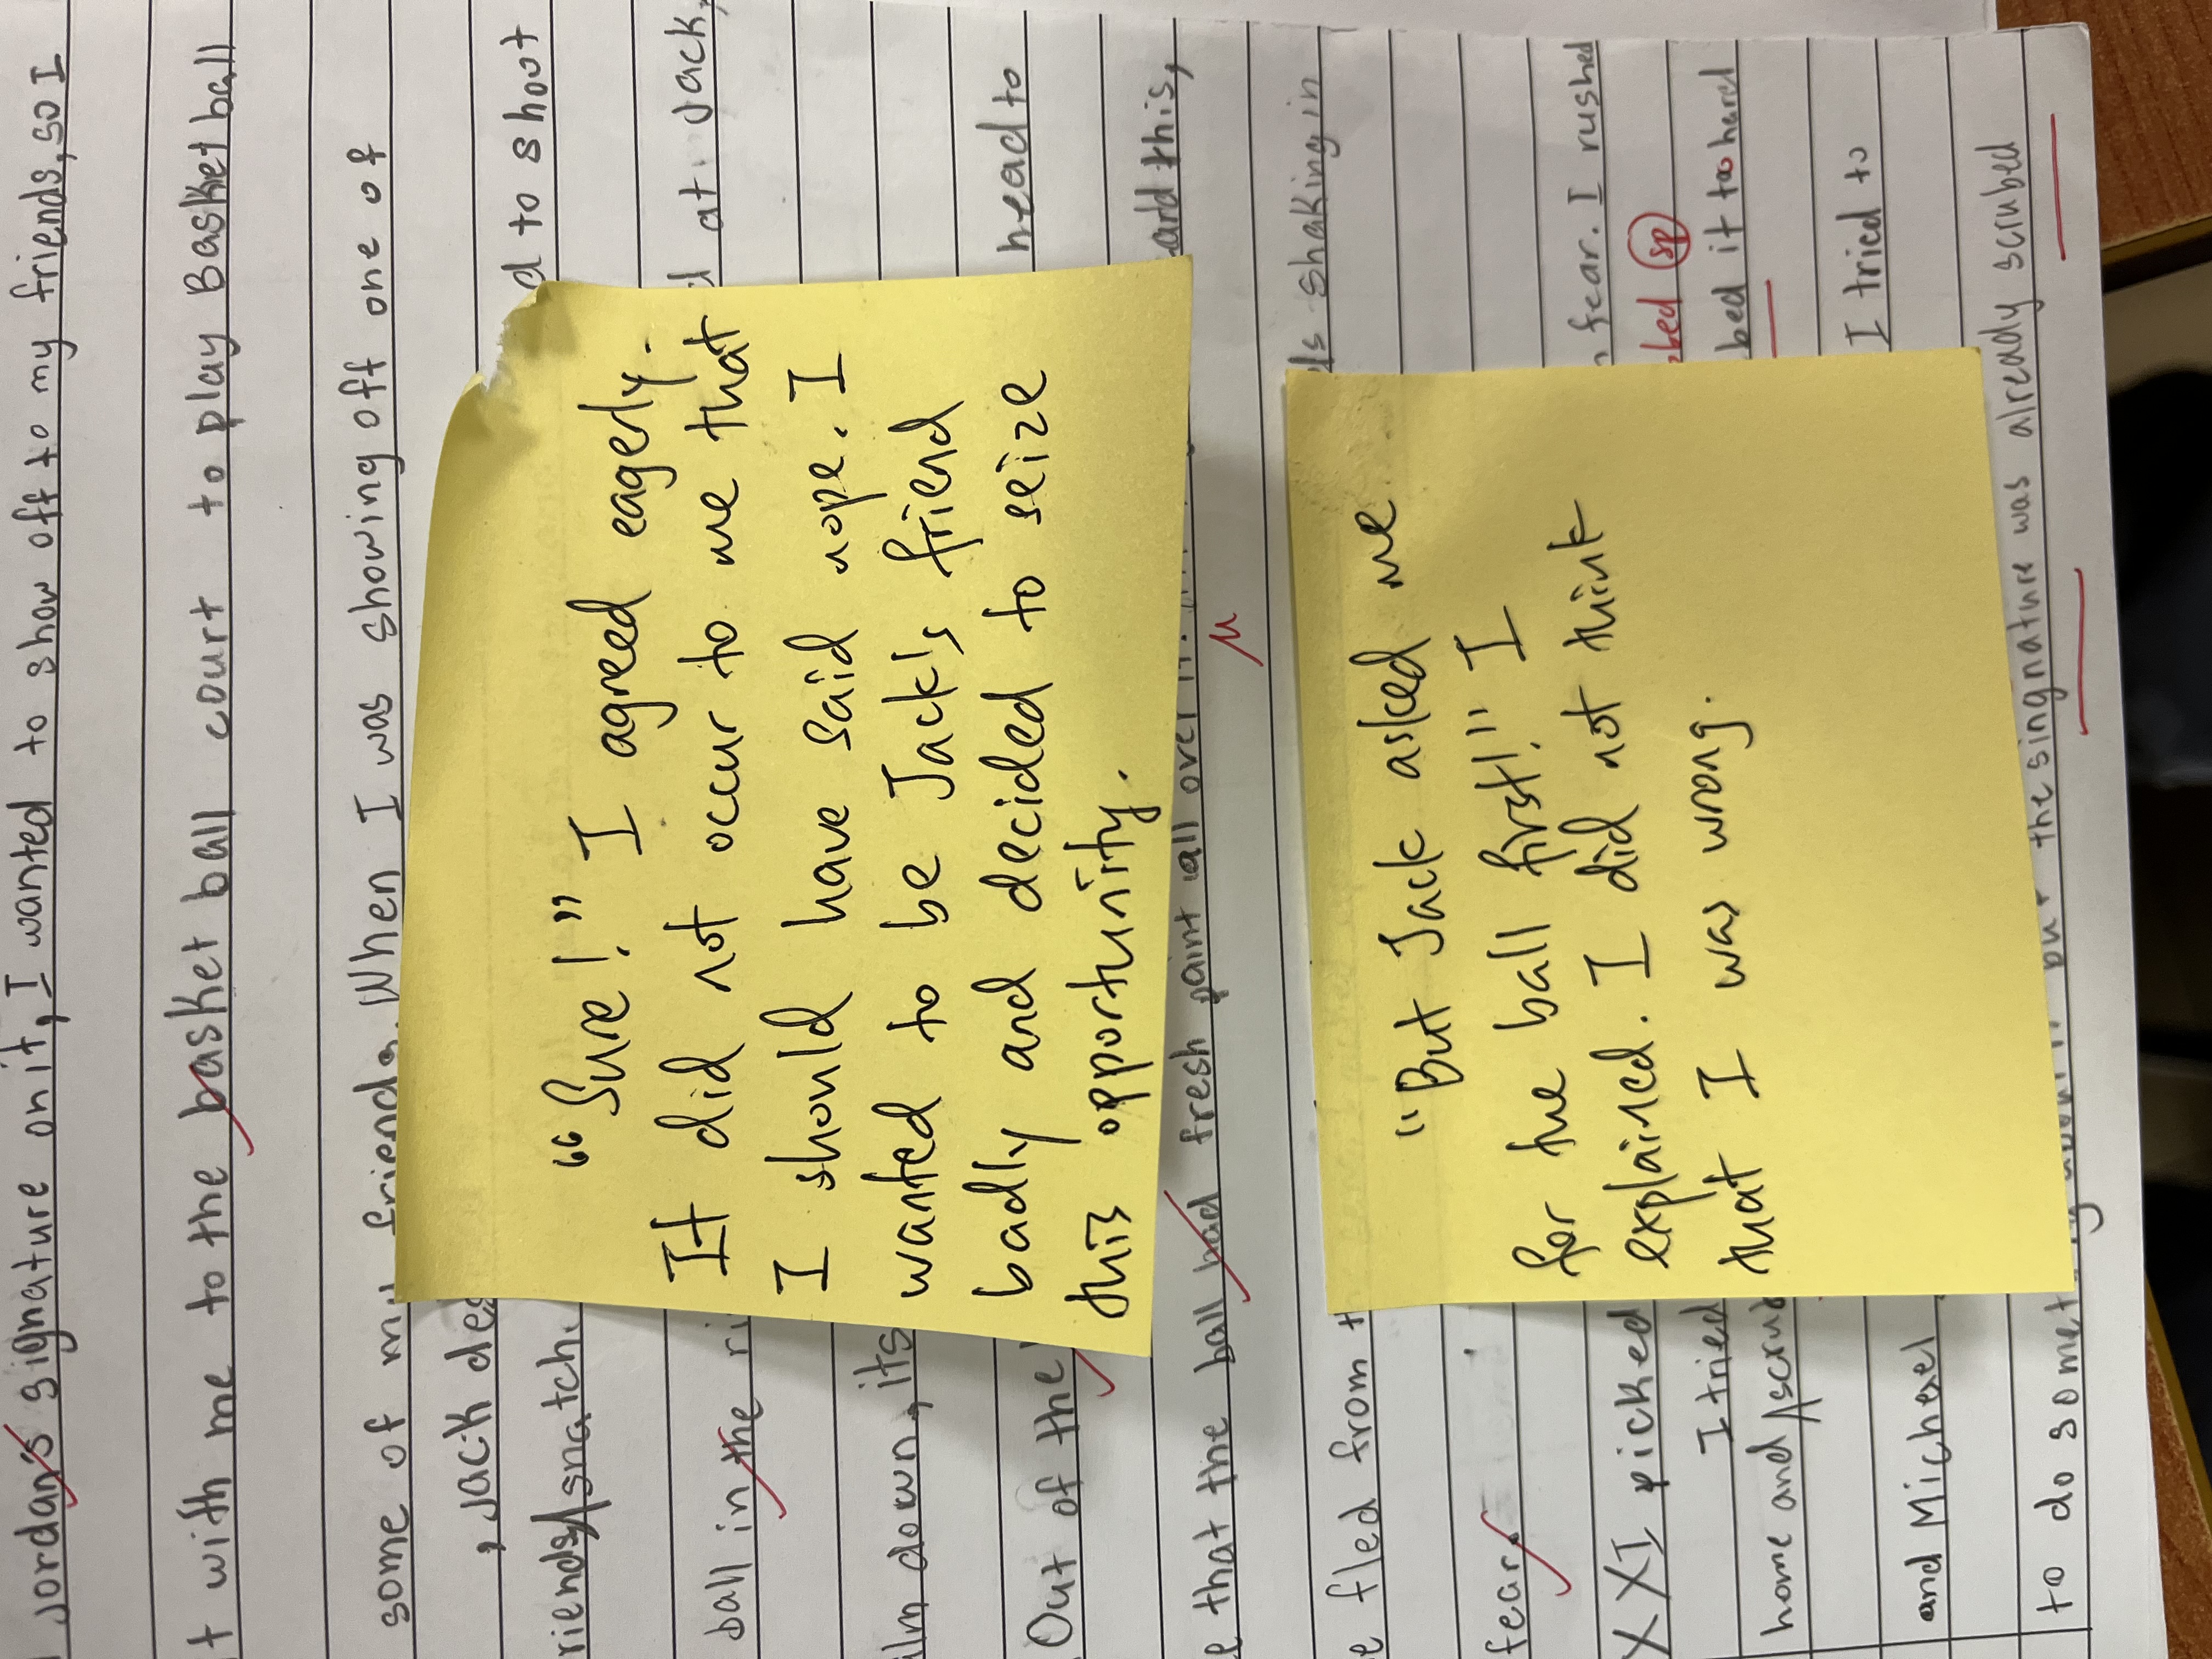 Jordan's signature on it, I wanted to show off to my friends, so I
t with me to the basket ball court to play Basket ball
some of my friends. When I was showing off one of
, Jack des d to shoot
riends snatch at Jack,
ball in the ri
lm down, its head to
Out of the ard this,
e that the ball bad fresh paint all over
e fled from shaking in
fear.
XXI picked fear. I rushed
I tried bed sp
home and scrub bed it too hard
and Michael I tried to
to do somet but the singnature was already scrubed
"Sure!" I agreed eagerly.
It did not occur to me that
I should have said nope. I
wanted to be Jack's friend
badly and decided to seize
this opportunity.
"But Jack asked me
for the ball first!" I
explained. I did not think
that I was wrong.